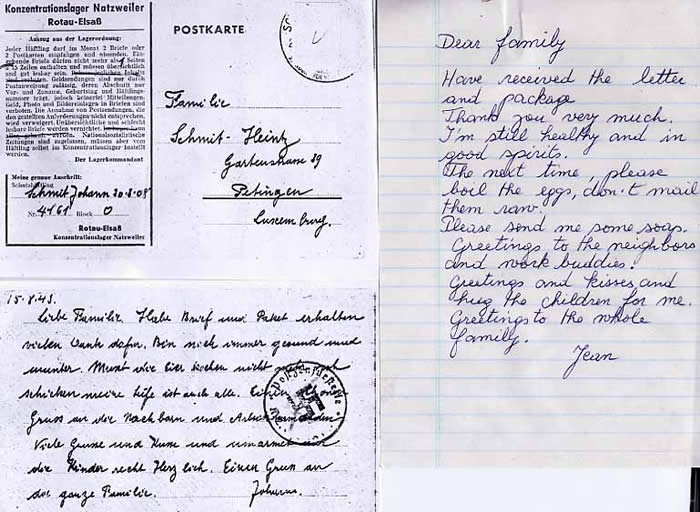 Konzentrationslager Natzweiler
Rotau-Elsaß
Auszug aus der Lagerordnung:
Jeder Häftling darf im Monat 2 Briefe oder
2 Postkarten empfangen und absenden. Ein-
gehende Briefe dürfen nicht mehr als 4 Seiten
à 15 Zeilen enthalten und müssen übersichtlich
und gut lesbar sein.
Geldsendungen sind nur durch
Postanweisung zulässig, deren Abschnitt nur
Vor- und Zuname, Geburtstag und Häftlings-
nummer trägt, jedoch keinerlei Mitteilungen.
Geld, Photo und Bildereinlagen in Briefen sind
verboten. Die Annahme von Postsendungen, die
den gestellten Anforderungen nicht entsprechen,
wird verweigert. Unübersichtliche und schlecht
lesbare Briefe werden vernichtet.
Nationalsozialistische
Zeitungen sind zugelassen, müssen aber vom
Häftling selbst im Konzentrationslager bestellt
werden.
Der Lagerkommandant
Meine genaue Anschrift:
Schutzhäftling
Schmit Johann 20.8.08
Nr. 4161 Block 0
Rotau-Elsaß
Konzentrationslager Natzweiler
POSTKARTE
Familie
Schmit-Heintz
Gartenstrasse 39
Petingen
Luxemburg.
15.8.43.
Liebe Familie. Habe Brief und Paket erhalten
vielen Dank dafür. Bin noch immer gesund und
munter. Must die Eier kochen nicht mehr roh
schicken meine Seife ist auch alle. Einen schönen
Gruss an die Nachbarn und
Viele Grüsse und Küsse und umarmet mir
die Kinder recht Herzlich. Einen Gruss an
die ganze Familie. Johann.
Dear family
Have received the letter
and package
Thank you very much.
I'm still healthy and in
good spirits.
The next time, please
boil the eggs, don't mail
them raw!
Please send me some soap.
Greetings to the neighbors
and work buddies!
Greetings and kisses and
hug the children for me.
Greetings to the whole
family.
Jean